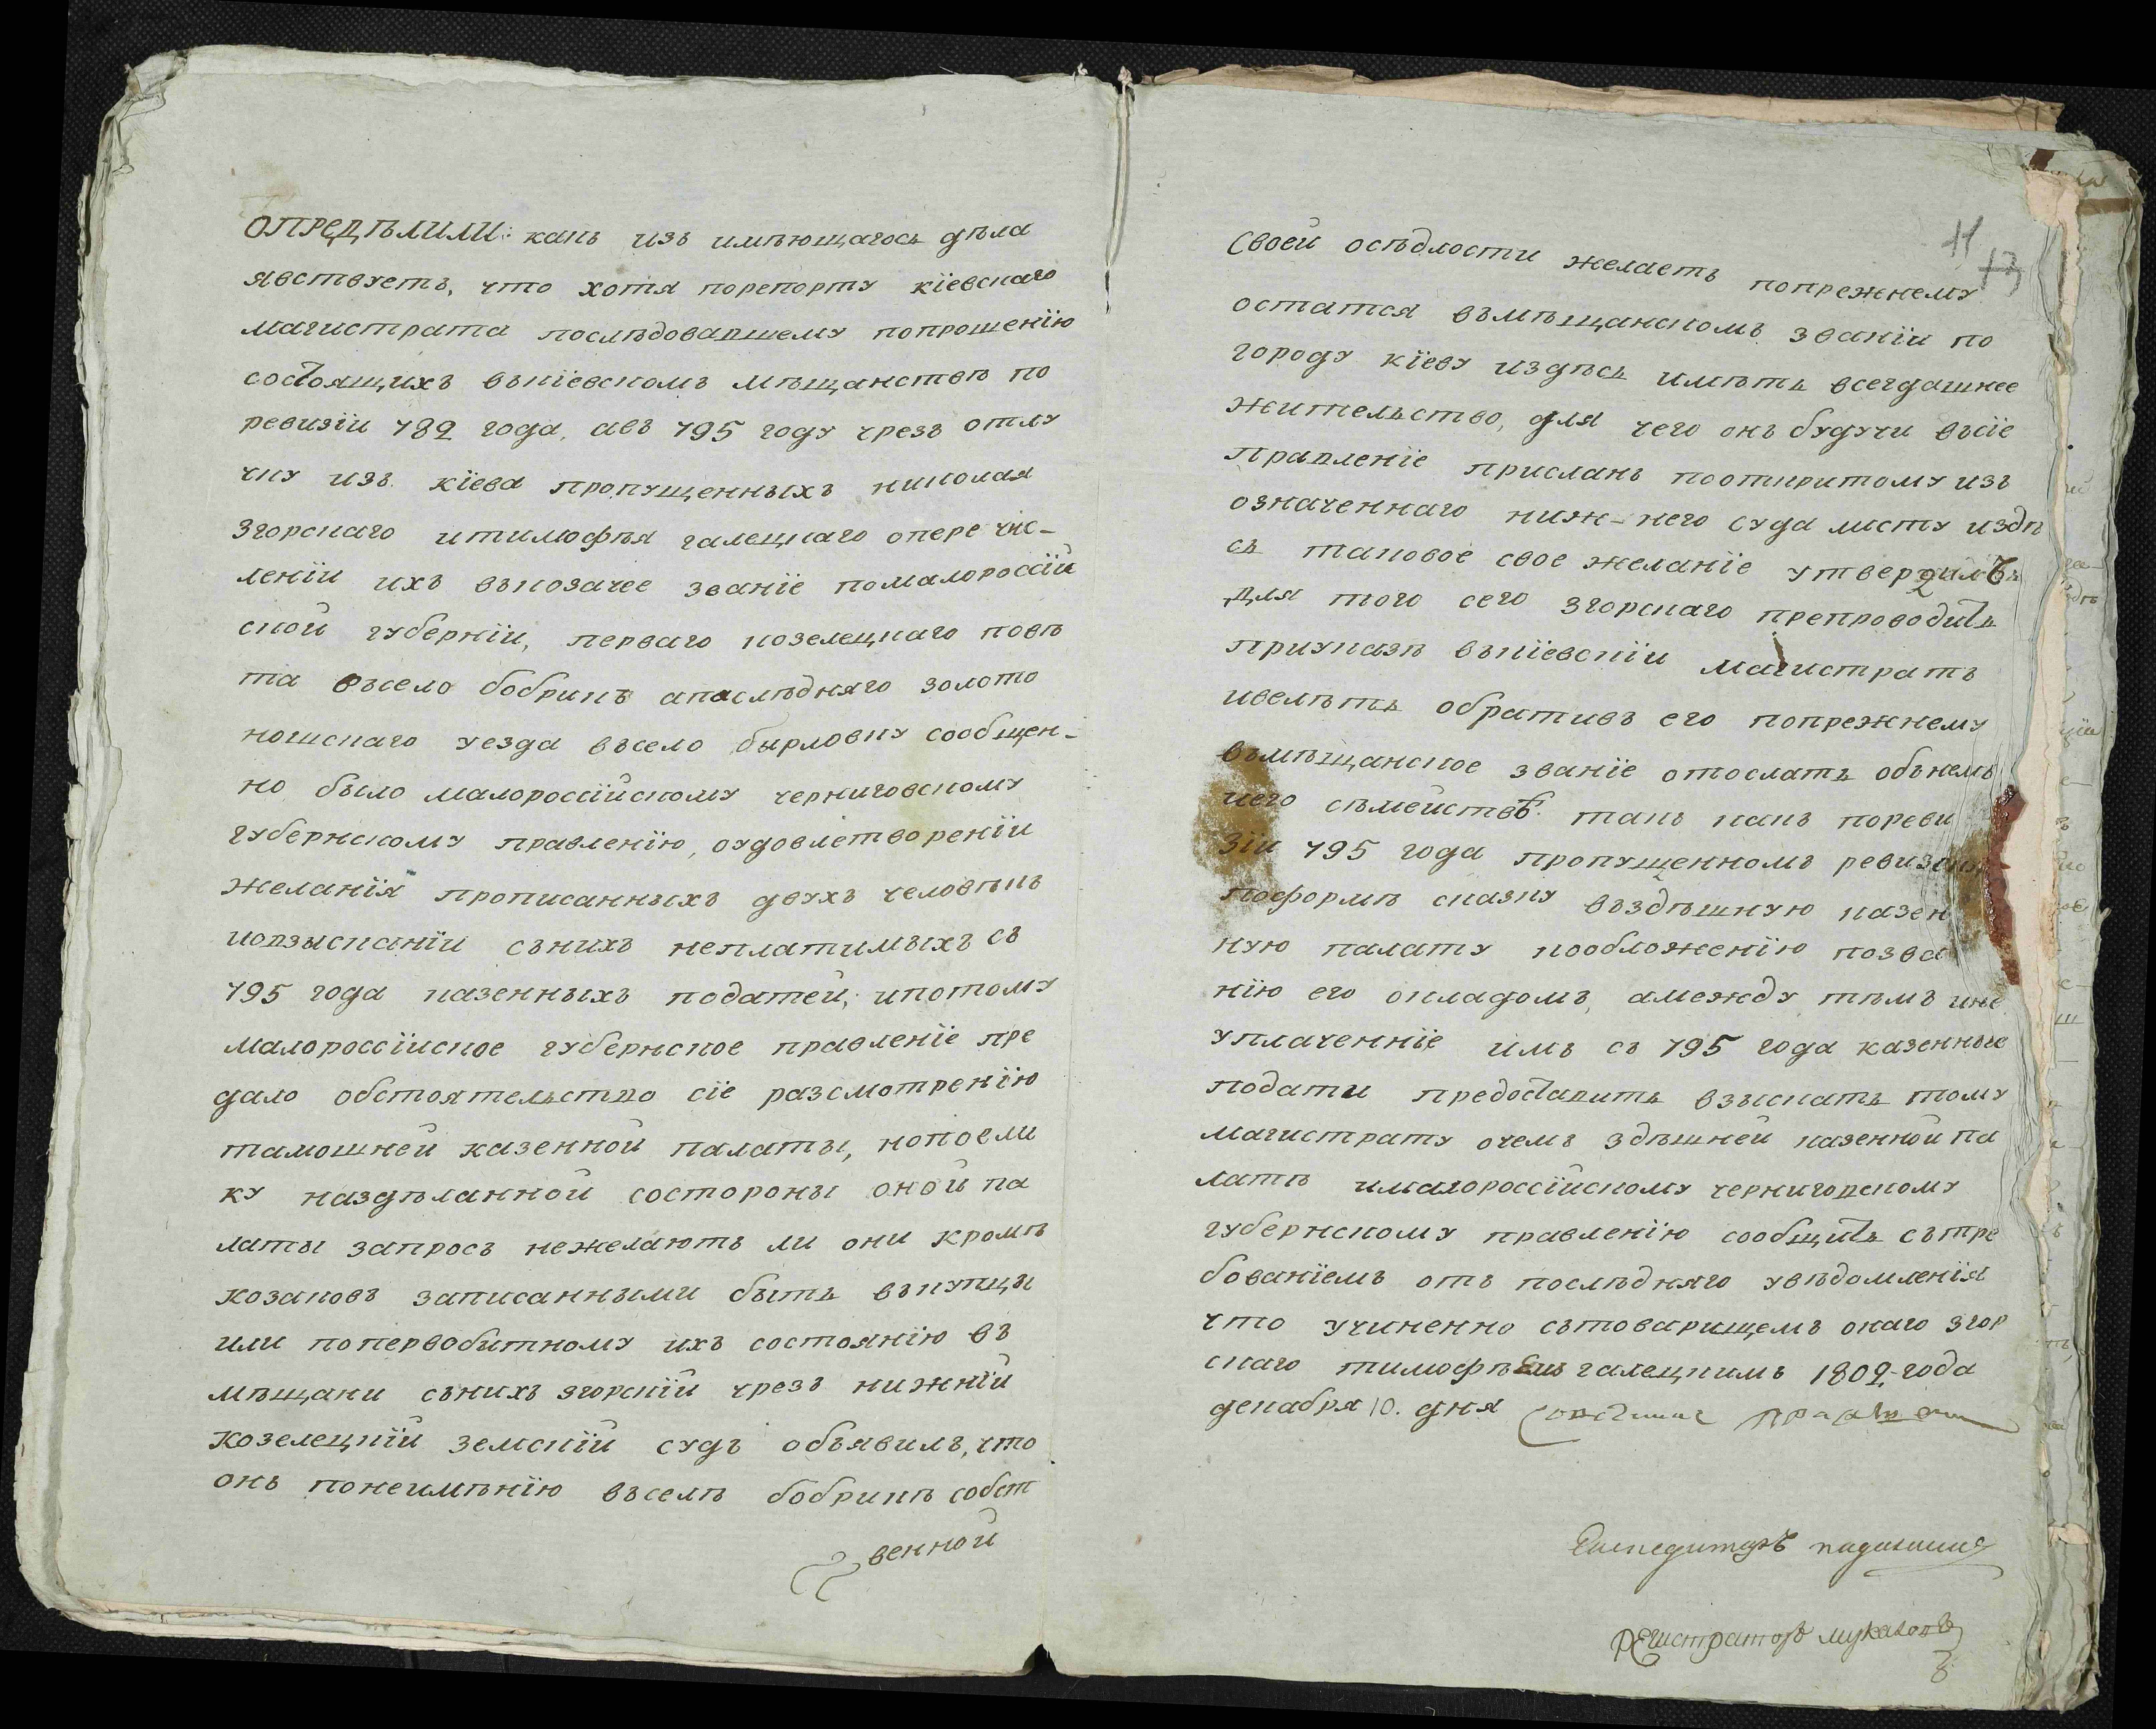 ОПРЕДѢЛИЛИ: какъ изъ имѣющагось дѣла
явствуетъ, что хотя порепорту кіевскаго
магистрата послѣдовавшему попрошенію
состоящихъ въкіевскомъ мѣщанствѣ по
ревизіи 782 года, авъ 795 году чрезъ отлу
чку изъ кіева пропущенныхъ николая
згорскаго итимофѣя галецкаго опере чис-
леніи ихъ въкозачее званіе помалороссій
ской губерніи, перваго козелецкаго повѣ
та въсело бобрикъ апаслѣдняго золото
ношскаго уезда въсело бырловку сообщен-
но было малороссійскому черниговскому
губернскому правленію, оудовлетвореніи
желанія прописанныхъ двухъ человѣкъ
иовзысканіи сънихъ неплатимыхъ съ
795 года казенныхъ податей; ипотому
малороссійское губернское правленіе пре
дало обстоятельство сіе разсмотренію
тамошней казенной палаты, нопоели
ку наздѣланной состороны оной па
латы запросъ нежелаютъ ли они кромѣ
козаковъ записанными быть въкупцы
или поперво­битному ихъ состоянію въ
мѣщани сънихъ згорскій чрезъ нижній
козелецкій земскій судъ объявилъ, что
онъ понеимѣнію въселѣ бобрикѣ собст
венной
11
13
своей осѣдлости желаетъ попрежнему
остатся въмѣщанскомъ званіи по
городу кіеву издѣсь имѣть всегдашнее
жительство, для чего онъ будучи въсіе
правленіе присланъ пооткритому изъ
означеннаго ниж-него суда листу издѣ
сь таковое свое желаніе утвердилъ
для того сего згорскаго препроводить
приуказѣ въкіевскіи магистратъ
ивелѣть обративъ его попрежнему
въмѣщанское званіе отослать объ немъ
иего сѣмействѣ такъ какъ пореви
зіи 795 года пропущенномъ
поформѣ сказку въздѣшную казен
ную палату кообложенію позва
нію его окладомъ, амежду тѣмъ ине
уплаченніе имъ съ 795 года казенные
подати предоставить взыскать тому
магистрату очемъ здѣшней казенной па
латѣ ималороссійскому черниговскому
губернскому правленію сообщить сътре
бованіемъ отъ послѣдняго увѣдомленія
что учиненно сътоварищемъ онаго згор
скаго тимофѣемъ галецкимъ 1802-года
декабря 10. дня
Експедиторъ
Регистраторъ